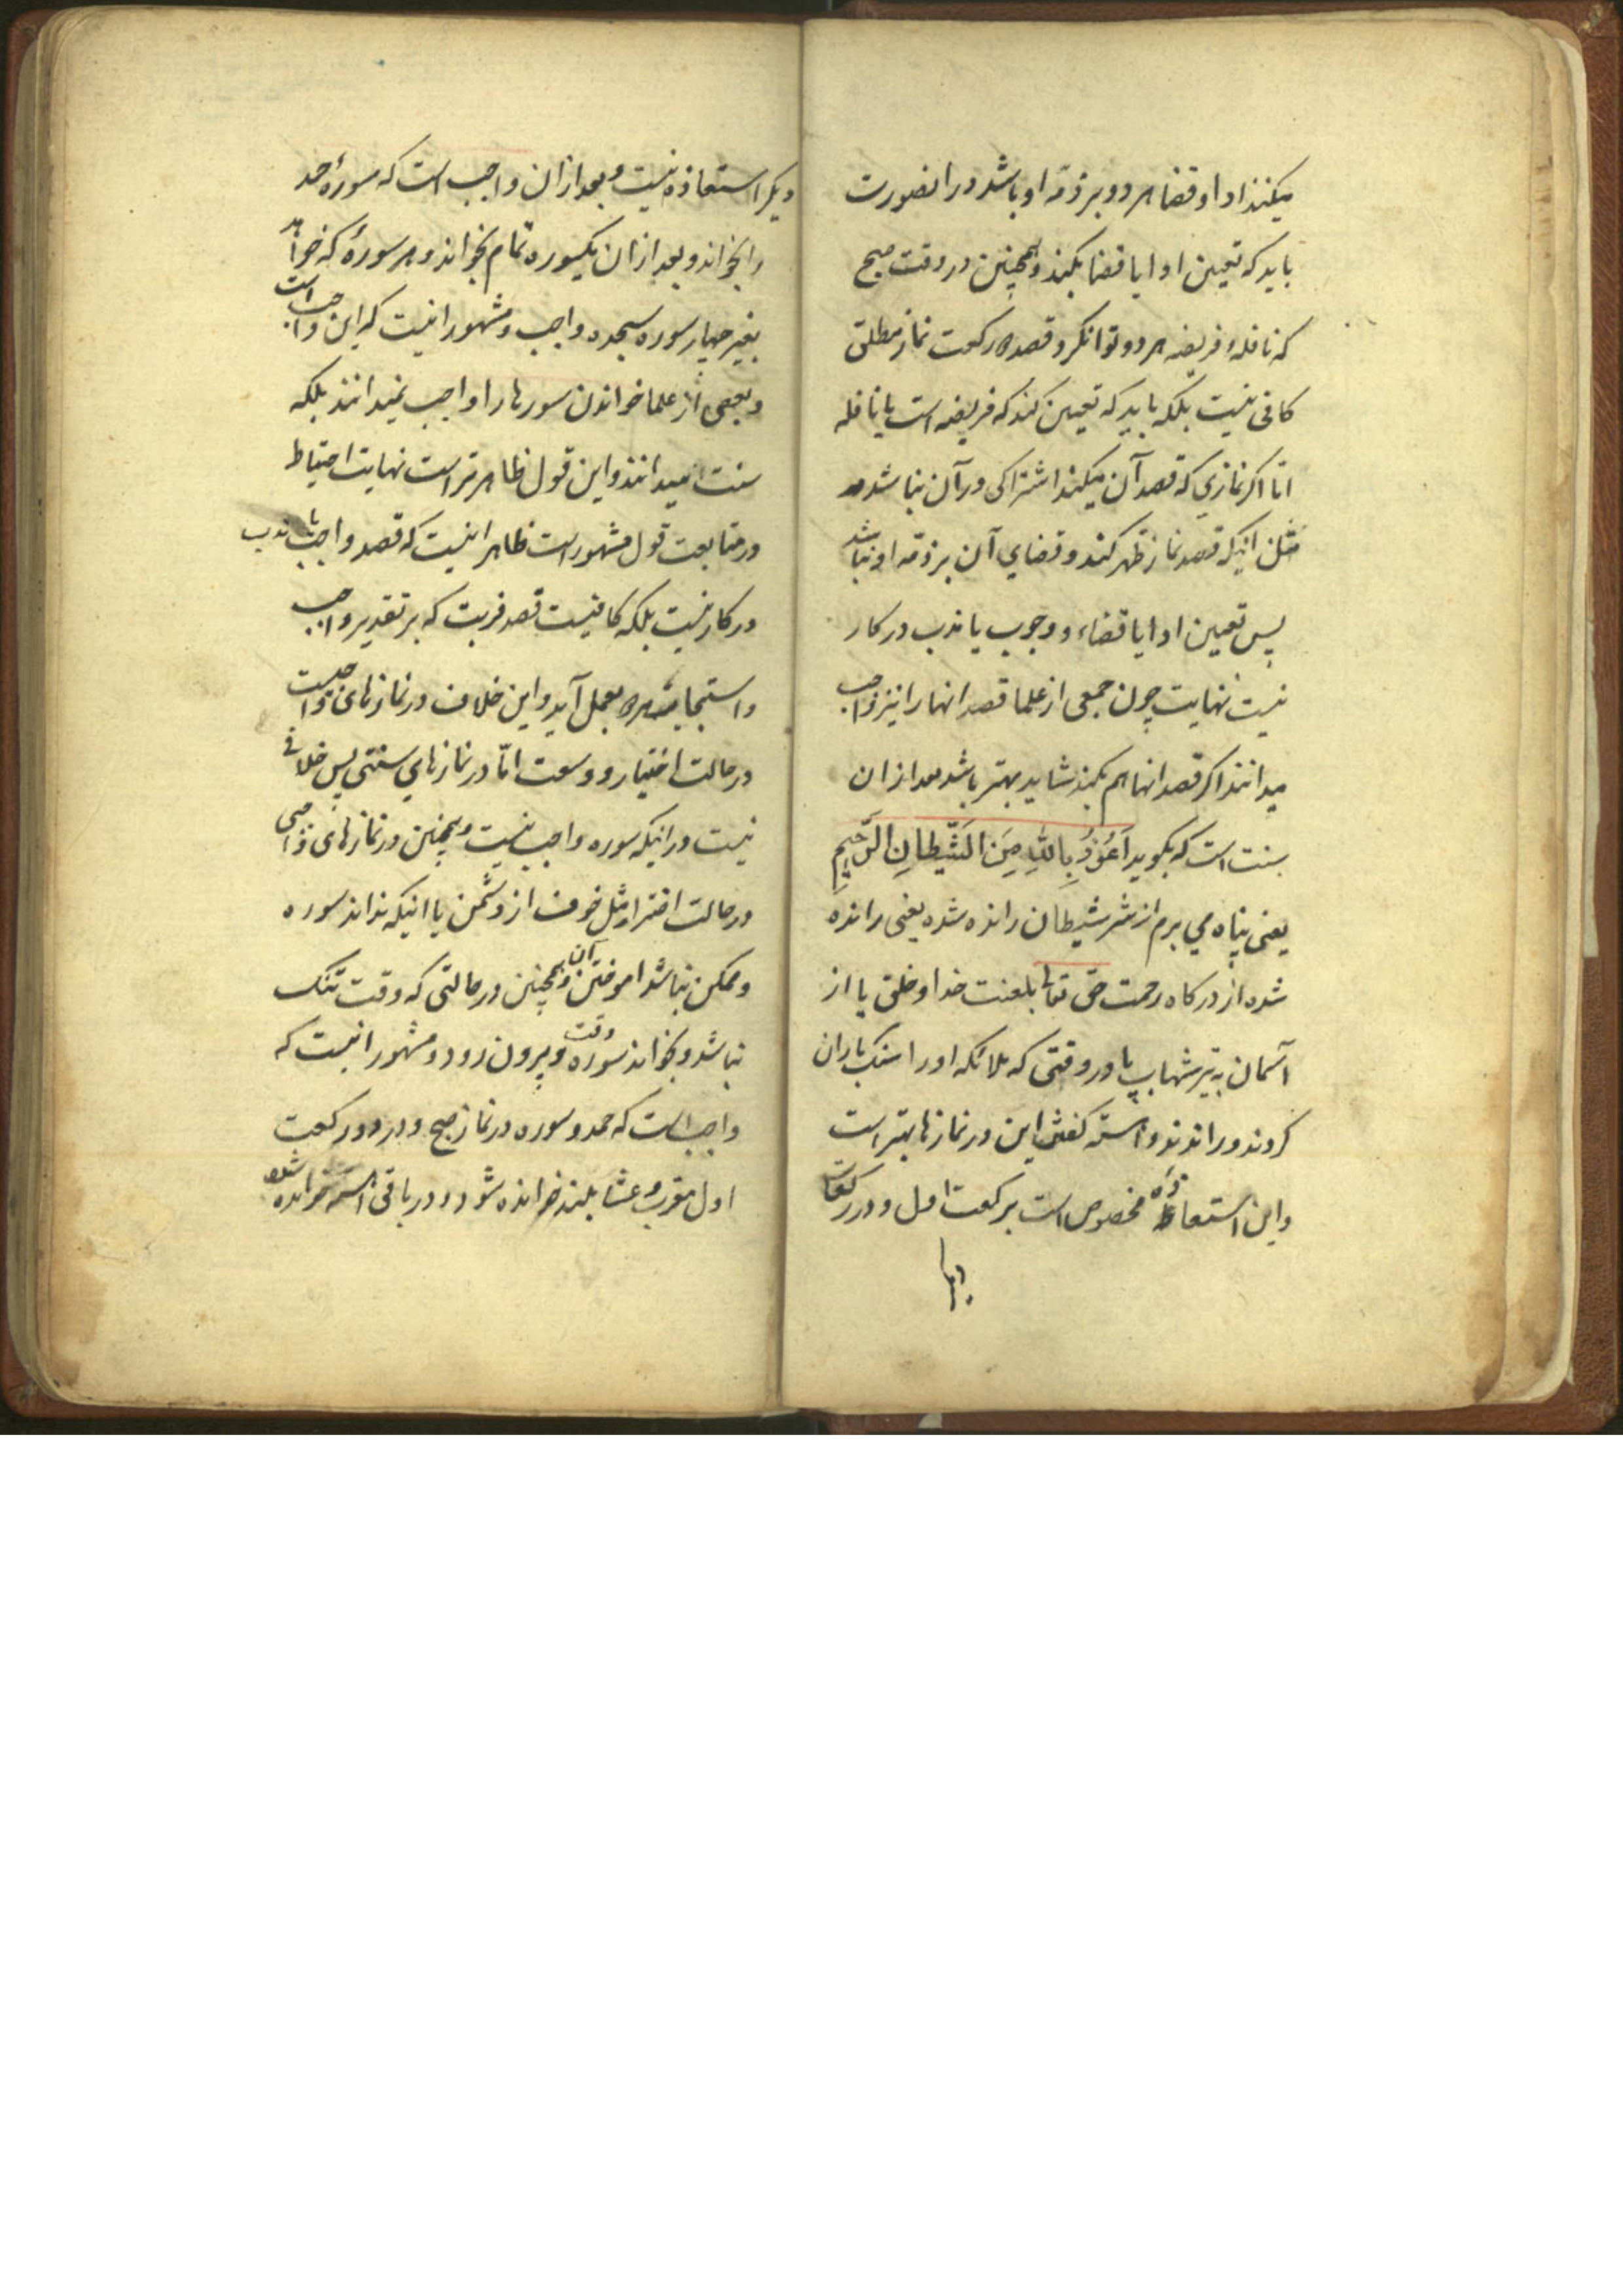 میکند ادا و قضا هر دو بر ذمّه او باشد در انصورت
باید که تعیین ادا یا قضا بکند و همچنین در وقت صبح
که نافله و فریضه هر دو توان کرد قصد دو رکعت نماز مطلق
کافی نیست بلکه باید که تعیین کند که فریضه است یا نافله
امّا اکر نمازي که قصد آن میکند اشتراکی در آن نباشد
مثل انیکه قصد نماز ظهر کند و قضاي آن بر ذمّه او نباشد
پس تعیین ادا یا قضاء و وجوب یا ندب در کار
نیست نهایت چون جمعی از علما قصد انها را نیز واجب
میدانند اکر قصد انها هم بکند شاید بهتر باشد بعد از ان
سنت است که بکوید اَعُوذُ بِاللهِ مِنَ الشَّیطانِ الرَّجیمِ
یعنی پناه می برم از شر شیطان رانده شده یعنی رانده
شده از درکاه رحمت حق تعالی بلعنت خدا و خلق یا از
آسمان به تیر شهاب یا در وقتی که ملائکه او را سنک باران
کردند و راندند و اهسته کفتن این در نمازها بهتر است
و این استعاذه مخصوص است برکعت اول و در رکعات
دیکر
دیکر استعاذه نیست و بعد از ان واجب است که سورهٔ حمد
را بخواند و بعد از ان یکسوره تمام بخواند و هر سورهٔ که خواند
بغیر چهار سوره سجده واجب و مشهور انیست که این واجب است
و بعضی از علما خواندن سورها را واجب نمیدانند بلکه
سنت میدانند و این قول ظاهرتر است نهایت احتیاط
در متابعت قول مشهور است ظاهر انیست که قصد واجب یا ندب
در کار نیست بلکه کافیست قصد قربت که بر تقدیر واجب
و استحباب هر دو بعمل آید و این خلاف در نمازهای واجبیست
در حالت اختیار و وسعت امّا در نمازهاي سنتی پس خلافی
نیست در انیکه سوره واجب نیست و همچنین در نمازهای واجبی
در حالت اضطرار مثل خوف از دشمن یا انیکه نداند سوره
و ممکن نباشد اموختن آن و همچنین در حالتی که وقت تنک
نباشد و بخواند سوره وقت بیرون رود و مشهور انیست که
واجب است که حمد و سوره در نماز صبح و در دو رکعت
اول مغرب و عشا بلند خوانده شود و در باقی اهسته خوانده شود